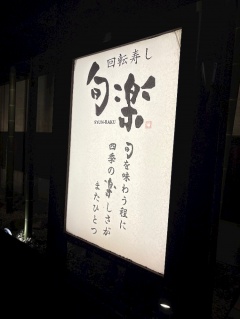 回転寿し
旬楽
SYUN-RAKU
旬を味わう程に
四季の楽しさが
またひとつ